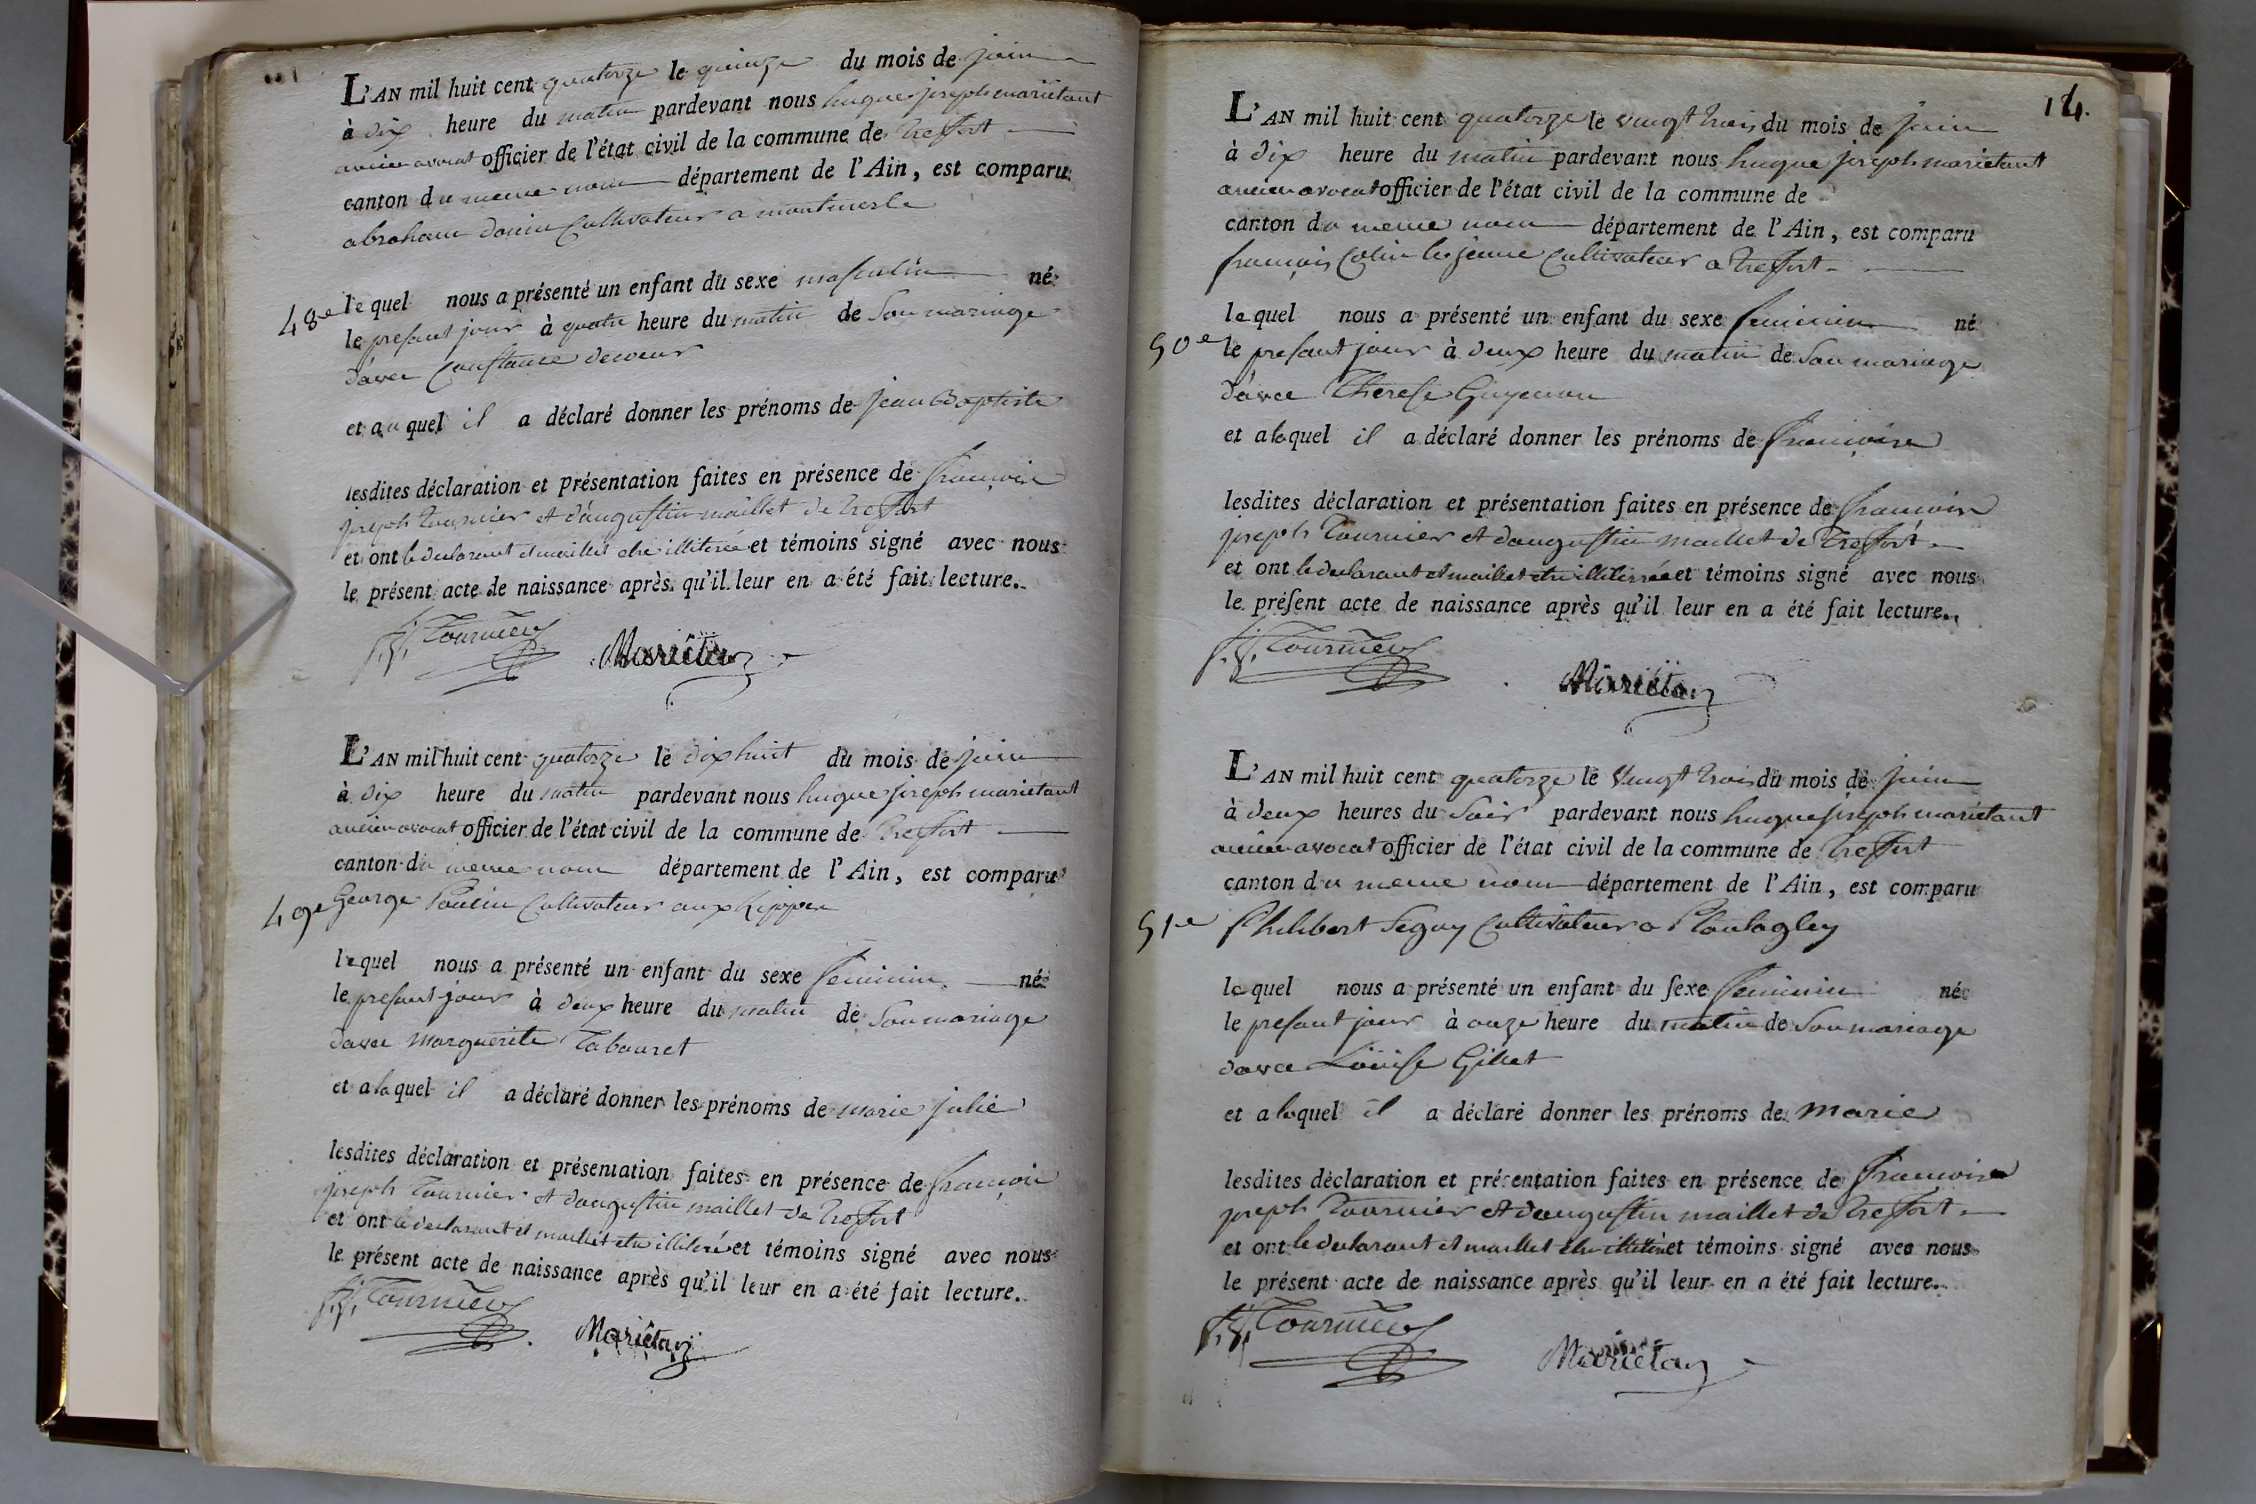 L'AN mil huit cent quatorze le quinze du mois de juin
à dix heure du matin pardevant nous hugue joseph mariétant
ancien avocat officier de l'état civil de la commune de treffort
canton du meme nom département de l'Ain, est comparu
abraham donin Cultivateur a montmerle
48e lequel nous a présenté un enfant du sexe masculin né
le presant jour à quatre heure du matin de Son mariage
d'avec Constance
et auquel il a déclaré donner les prénoms de jean Baptiste
lesdites déclaration et présentation faites en présence de françois
joseph tournier et d'augustin maillet de treffort
et ont le declarant et maillet etre illiteré et témoins signé avec nous
le présent acte de naissance après qu'il leur en a été fait lecture.
f.j. Tournier Mariétan
L'AN mil huit cent quatorze le dix huit du mois de juin
à dix heure du matin pardevant nous hugue joseph mariétant
ancien avocat officier de l'état civil de la commune de treffort
canton du meme nom département de l'Ain, est comparu
49e George Poulin Cultivateur aux
lequel nous a présenté un enfant du sexe feminin né
le presant jour à deux heure du matin de Son mariage
d'avec marguerite Tabouret
et alaquel il a déclaré donner les prénoms de marie julie
lesdites déclaration et présentation faites en présence de françois
joseph tournier et d'augustin maillet de treffort
et ont le declarant et maillet etre illiteré et témoins signé avec nous
le présent acte de naissance après qu'il leur en a été fait lecture.
f.j. Tournier Mariétan
14.
L'AN mil huit cent quatorze le vingt trois du mois de juin
à dix heure du matin pardevant nous hugue joseph mariétant
ancien avocat officier de l'état civil de la commune de
canton du meme nom département de l'Ain, est comparu
françois Colin le jeune Cultivateur a treffort
lequel nous a présenté un enfant du sexe feminin né
50e le presant jour à deux heure du matin de Son mariage
d'avec Therese Guyenon
et alaquel il a déclaré donner les prénoms de françoise
lesdites déclaration et présentation faites en présence de françois
joseph tournier et d'augustin maillet de treffort
et ont le declarant et maillet etre illiteré et témoins signé avec nous
le présent acte de naissance après qu'il leur en a été fait lecture.
f.j. Tournier Mariétan
L'AN mil huit cent quatorze le vingt trois du mois de juin
à deux heures du Soir pardevant nous hugue joseph mariétant
ancien avocat officier de l'état civil de la commune de treffort
canton du meme nom département de l'Ain, est comparu
51e Philibert Seguy Cultivateur a Plantagley
lequel nous a présenté un enfant du sexe feminin né
le presant jour à onze heure du matin de Son mariage
d'avec Louise Gillet
et alaquel il a déclaré donner les prénoms de marie
lesdites déclaration et présentation faites en présence de françois
joseph tournier et d'augustin maillet de treffort
et ont le declarant et maillet etre illiteré et témoins signé avec nous
le présent acte de naissance après qu'il leur en a été fait lecture.
f.j. Tournier Mariétan